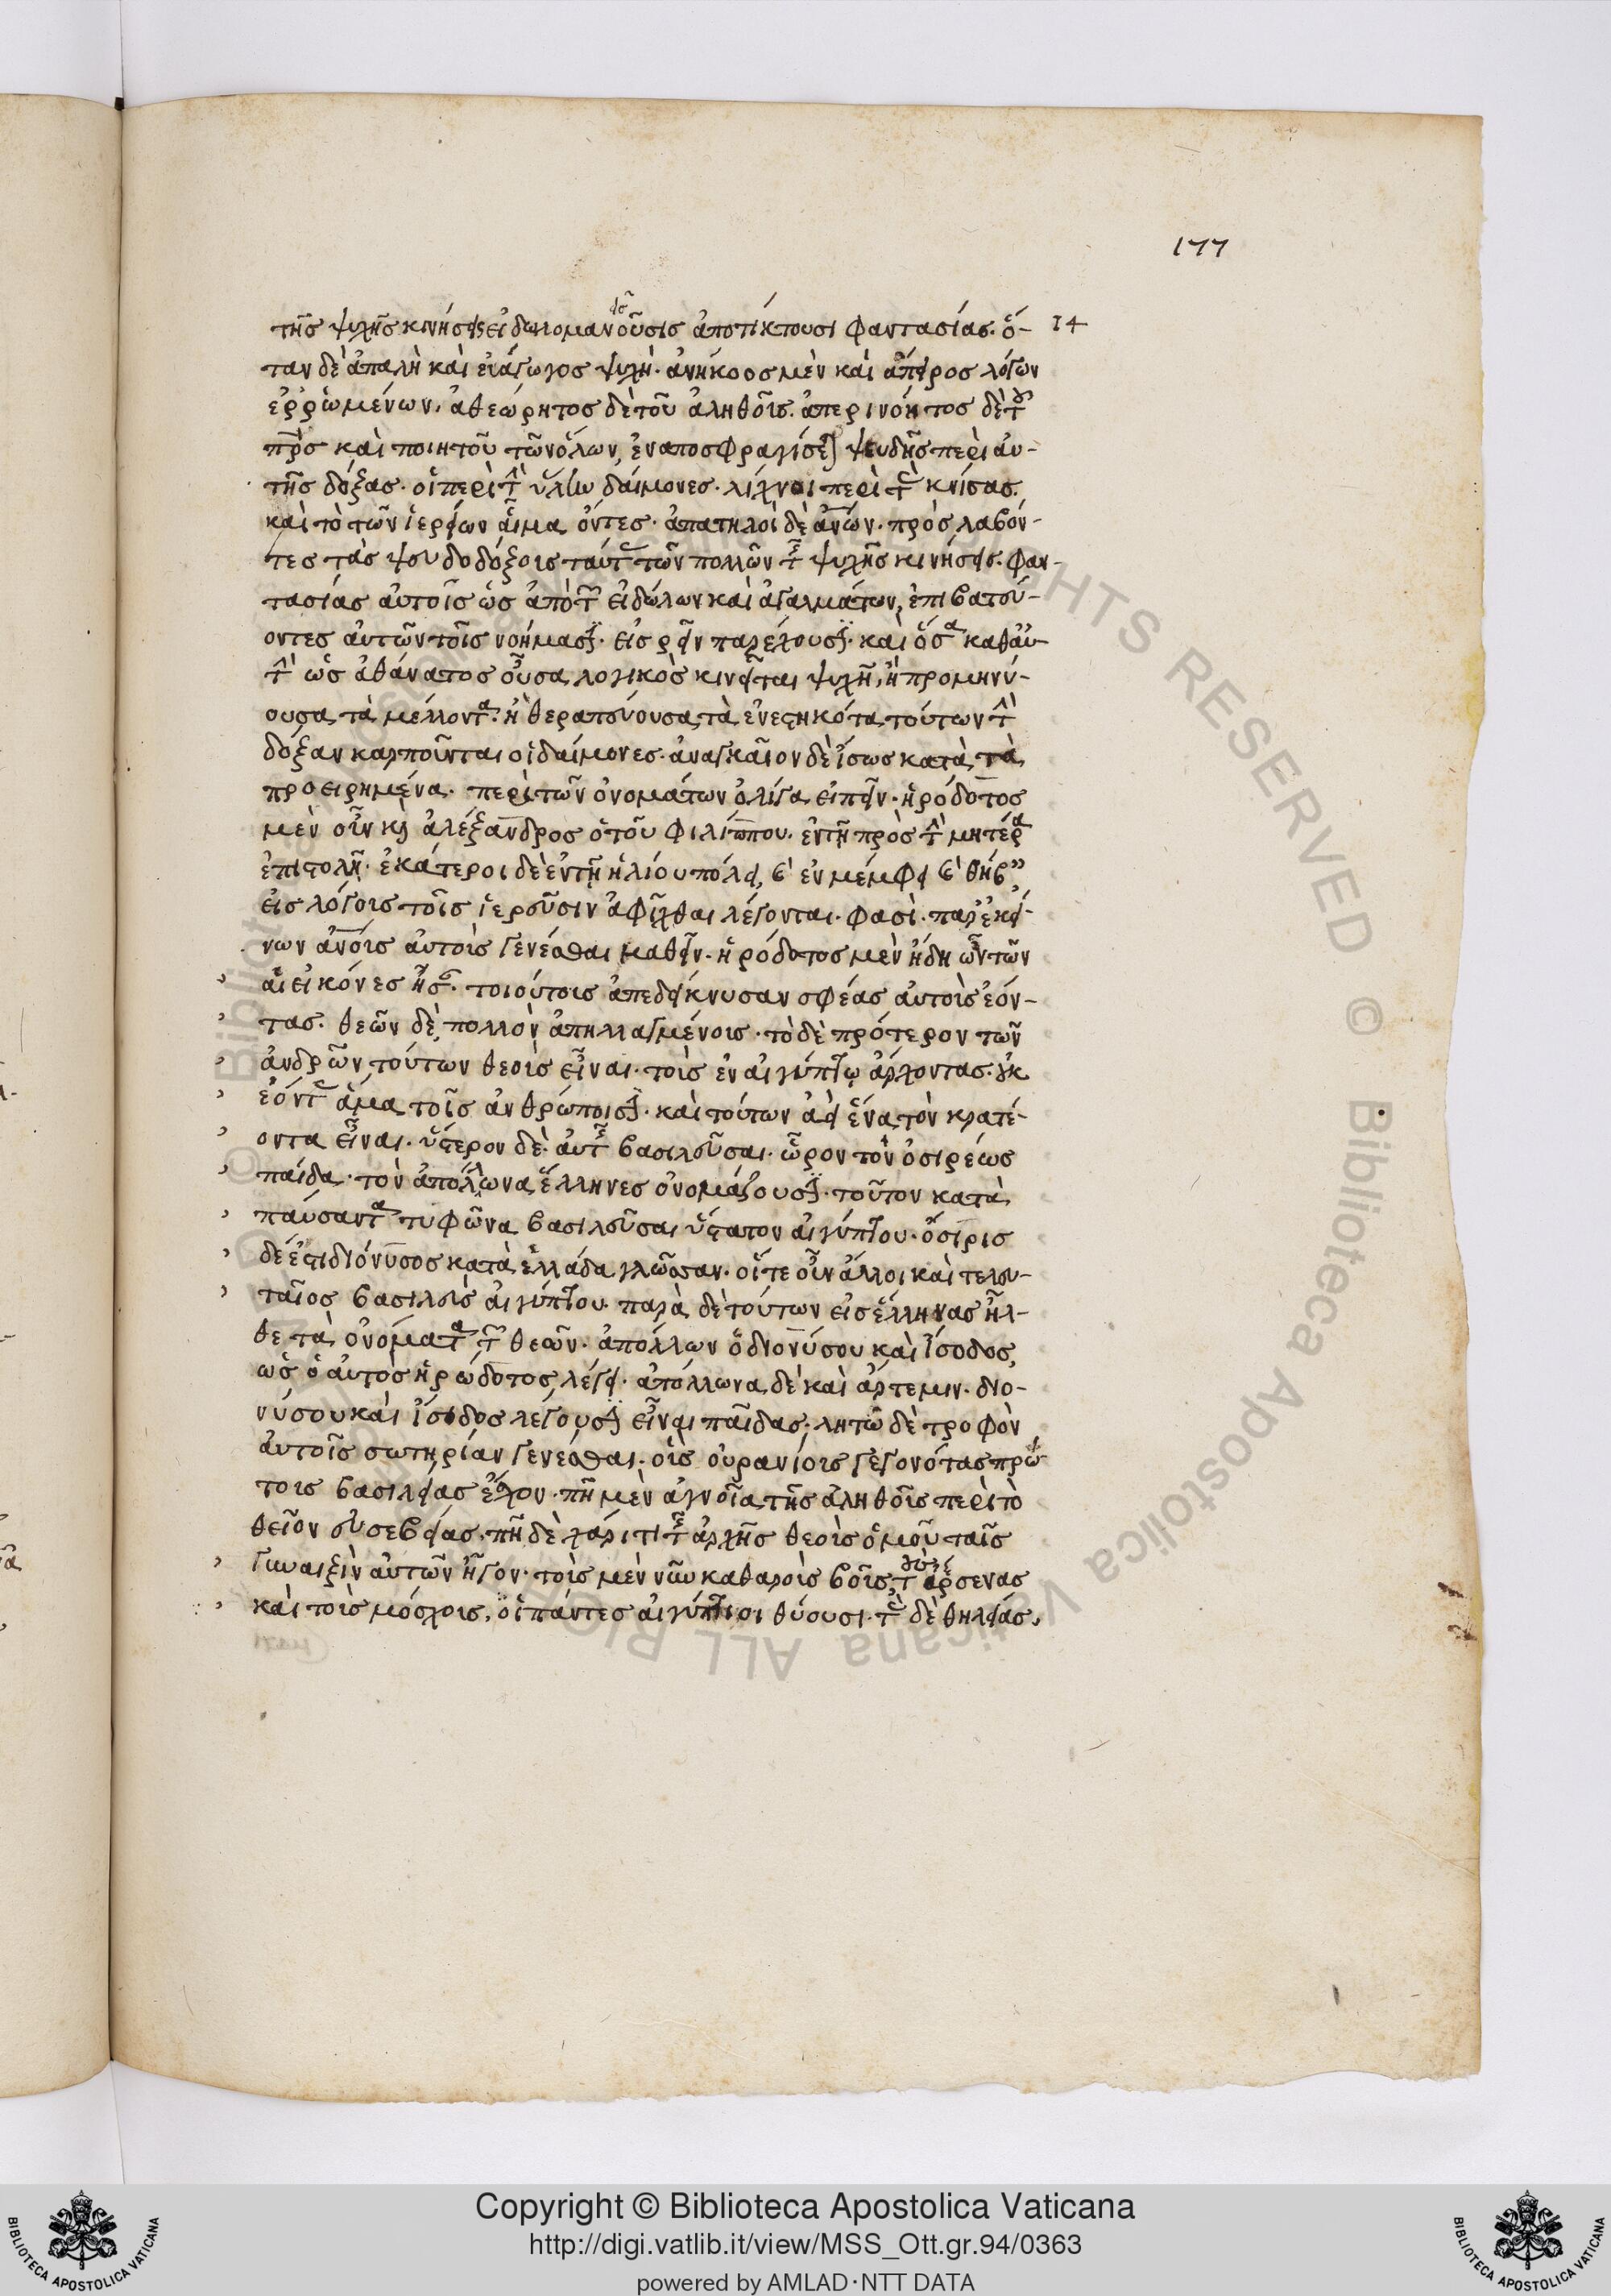 177
τῆς ψυχῆς κινήσεις εἰδωλομανοῦσις ἀποτίκτουσι φαντασίας. ὅ- 14
ταν δὲ ἁπαλὴ καὶ εὐάγωγος ψυχὴ· ἀνήκοος μὲν καὶ ἄπειρος λόγων
ἐρρωμένων, ἀθεώρητος δὲ τοῦ ἀληθοῦς. ἀπερινόητος δὲ τοῦ
πρὸς καὶ ποιητοῦ τῶν ὅλων, ἐναποσφραγίσηται ψευδεῖς περὶ αὑ-
τῆς δόξας. οἱ περὶ τὴν ὕλην δαίμονες. λίχνοι περὶ τὰς κνίσας
καὶ τὸ τῶν ἱερείων αἷμα ὄντες· ἀπατηλοὶ δὲ ἀνων. προσλαβόν-
τες τὰς ψευδοδόξους ταύτας τῶν πολλῶν τῆς ψυχῆς κινήσεις. φαν-
τασίας αὐτοῖς ὡς ἀπὸ τῶν εἰδώλων καὶ ἀγαλμάτων, ἐπιβατεύ-
οντες αὐτῶν τοῖς νοήμασιν. εἰσρεῖν παρέχουσιν. καὶ ὅσα καθ' αὑ-
τὴν ὡς ἀθάνατος οὖσα λογικὸς κινεῖται ψυχῆ, ἢ προμηνύ-
ουσα τὰ μέλλοντα. ἢ θεραπεύουσα τὰ ἐνεστηκότα, τούτων τὴν
δόξαν καρποῦνται οἱ δαίμονες. ἀναγκαῖον δὲ ἴσως κατὰ τὰ
προειρημένα. περὶ τῶν ὀνομάτων ὀλίγα εἰπεῖν. ἡρόδοτος
μὲν οὖν καὶ ἀλέξανδρος ὁ τοῦ φιλίππου. ἐν τῇ πρὸς τὴν μητέρα
ἐπιστολῇ. ἑκάτεροι δὲ ἐν τῇ ἡλίου πόλει, καὶ ἐν μέμφει καὶ θήβαις
εἰς λόγους τοῖς ἱερεῦσιν ἀφῖχθαι λέγονται. φασὶ. παρ' ἐκεί-
νων ἀνους αὐτοὺς γενέσθαι μαθεῖν. ἡρόδοτος μὲν ἤδη ὧν τῶν
αἱ εἰκόνες ἦσαν. τοιούτους ἀπεδείκνυσαν σφέας αὐτοὺς ἐόν-
τας. θεῶν δὲ πολλὸν ἀπηλλαγμένους. τὸ δὲ πρότερον τῶν
ἀνδρῶν τούτων θεοὺς εἶναι. τοὺς ἐν αἰγύπτῳ ἄρχοντας. οὐκ
ἐόντας ἅμα τοῖς ἀνθρώποισιν. καὶ τούτων ἀεὶ ἕνα τὸν κρατέ-
οντα εἶναι. ὕστερον δὲ αὐτῆς βασιλεῦσαι. ὦρον τὸν ὀσιρέως
παῖδα. τὸν ἀπόλλωνα ἕλληνες ὀνομάζουσιν. τοῦτον κατα-
παύσαντα τυφῶνα βασιλεῦσαι ὕστατον αἰγύπτου. ὄσιρις
δέ ἐστι διόνυσος κατὰ ἑλλάδα γλῶσσαν. οἵ τε οὖν ἄλλοι καὶ τελευ-
ταῖος βασιλεὺς αἰγύπτου. παρὰ δὲ τούτων εἰς ἕλληνας ἦλ-
θε τὰ ὀνόματα τῶν θεῶν. ἀπόλλων ὁ διονύσου καὶ ἴσοδος,
ὡς ὁ αὐτὸς ἡρώδοτος λέγει. ἀπόλλωνα δὲ καὶ ἄρτεμιν. διο-
νύσου καὶ ἴσιδος λέγουσιν εἶναι παῖδας. λητὼ δὲ τροφὸν
αὐτοῖς σωτηρίαν γενέσθαι. οὓς οὐρανίους γεγονότας πρώ
τους βασιλείας ἔσχον. πῆ μὲν ἀγνοῖα τῆς ἀληθοῦς περὶ τὸ
θεῖον εὐσεβείας. πῆ δὲ χάριτι τῆς ἀρχῆς θεοὺς ὁμοῦ ταῖς
γυναιξὶν αὐτῶν ἦγον. τοὺς μὲν νῦν καθαροὺς βοῦς τοὺς ἄρσενας
καὶ τοὺς μόσχους, οἱ πάντες αἰγύπτιοι θύουσι. τὰς δὲ θηλείας,
Copyright © Biblioteca Apostolica Vaticana
http://digi.vatlib.it/view/MSS_Ott.gr.94/0363
powered by AMLAD·NTT DATA